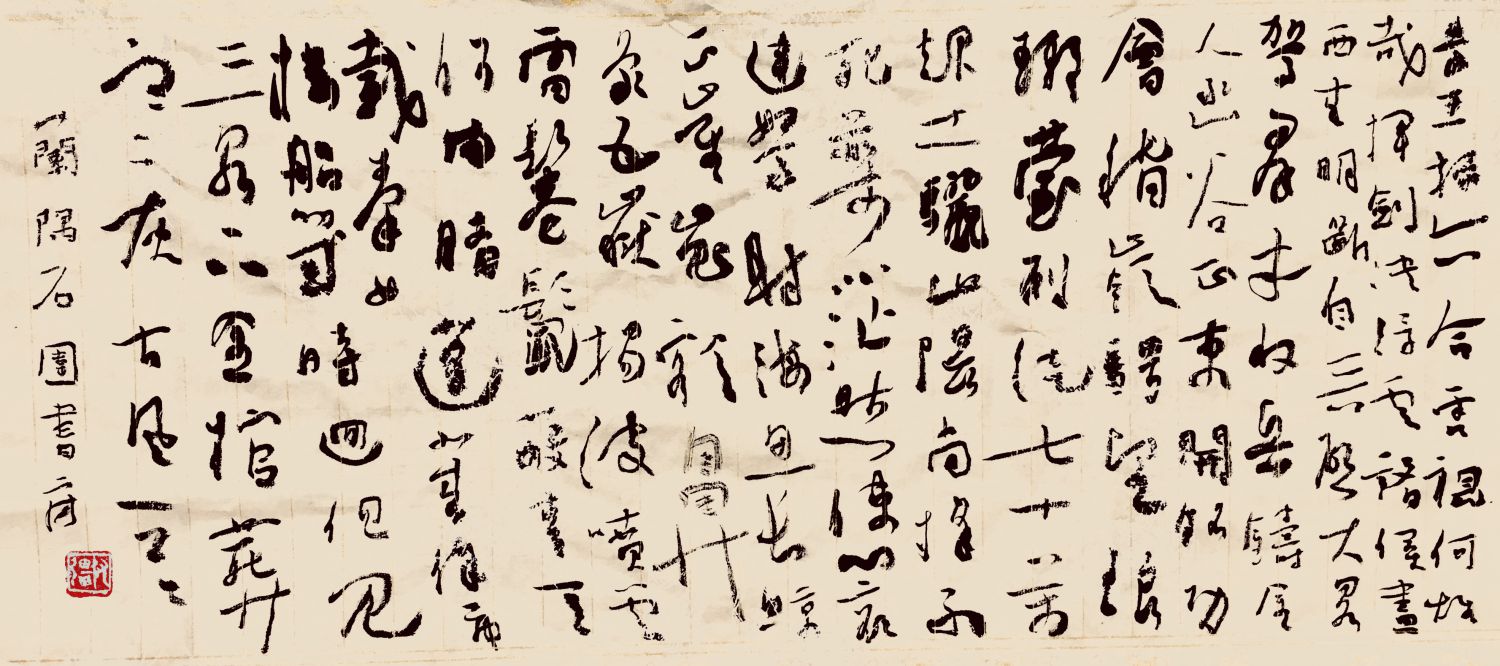 秦王掃六合虎視何雄
哉揮劍決浮雲諸侯盡
西來明斷自天啟大略
駕群才收兵鑄金
人函谷正東開銘功
會稽嶺騁望琅
琊臺刑徒七十萬
起土驪山隈尚採不
死藥茫然使心哀
連弩射海魚長鯨
正崔嵬額鼻
象五嶽揚波噴雲
雷鬐鬣蔽青天
何由睹蓬萊徐市
載秦女
樓船幾時迴但見
三泉下金棺葬
寒灰古風
蘭隅石園書